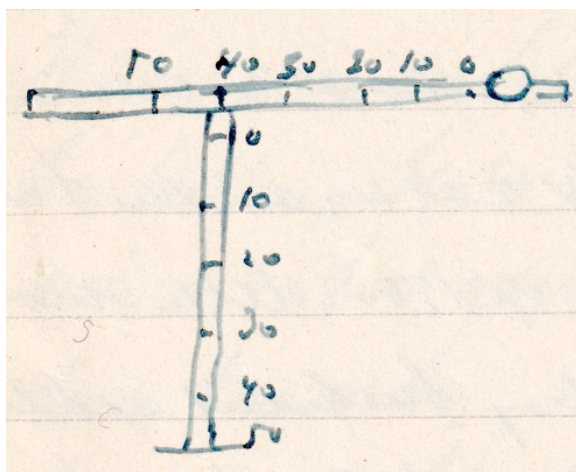 50 40 30 20 10 0
0
10
20
30
40
50